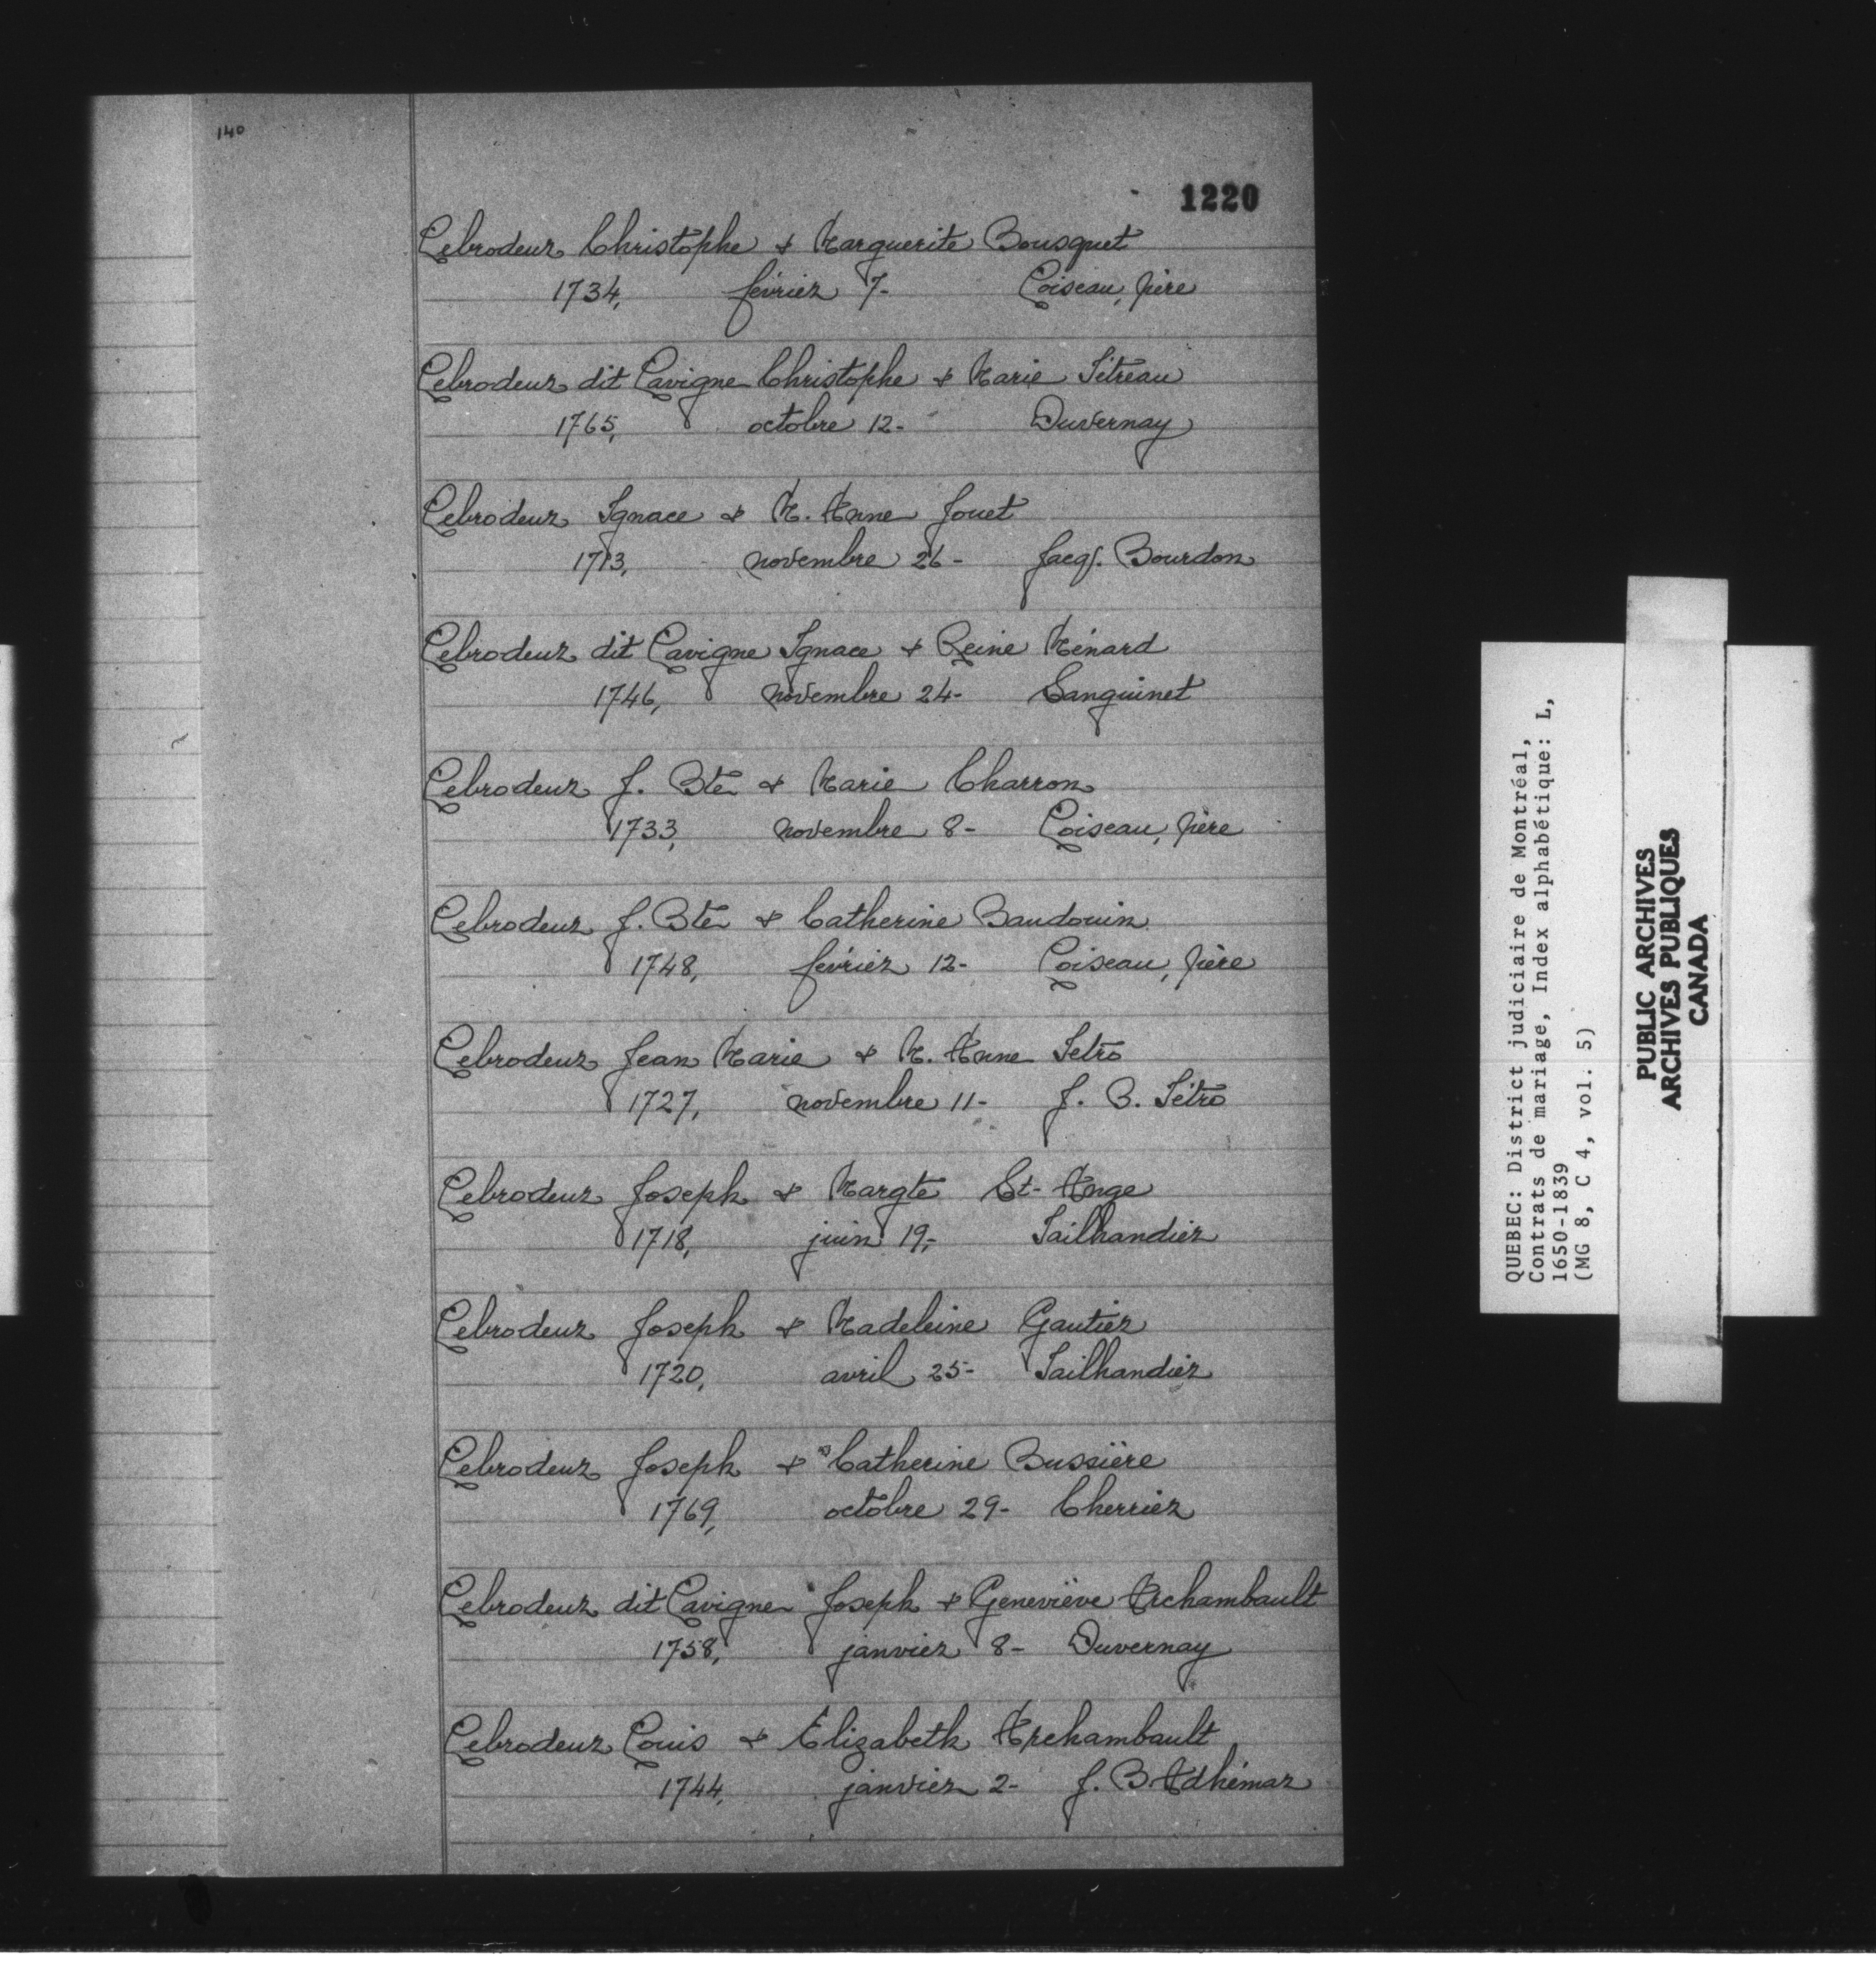 140
1220
Lebrodeur Christophe & Marguerite Bousquet
1734, février 7- Loiseau, père
Lebrodeur dit Lavigne Christophe & Marie Tétreau
1765, octobre 12- Duvernay
Lebrodeur Ignace & M. Anne Jouet
1713, novembre 26- Jacqs. Bourdon
Lebrodeur dit Lavigne Ignace & Reine Ménard
1746, novembre 24- Sanguinet
Lebrodeur J. Bte & Marie Charron
1733, novembre 8- Loiseau, père
Lebrodeur J. Bte & Catherine Baudouin
1748, février 12- Loiseau, père
Lebrodeur Jean Marie & M. Anne Tetro
1727, novembre 11- J. B. Tétro
Lebrodeur Joseph & Margte St-Ange
1718, juin 19,- Tailhandier
Lebrodeur Joseph & Madeleine Gautier
1720, avril 25- Tailhandier
Lebrodeur Joseph & Catherine Bussière
1769, octobre 29- Cherrier
Lebrodeur dit Lavigne Joseph & Geneviève Archambault
1758, janvier 8- Duvernay
Lebrodeur Louis & Elizabeth Archambault
1744, janvier 2- J. B. Adhémar
QUEBEC: District judiciaire de Montréal,
Contrats de mariage, Index alphabétique: L,
1650-1839
(MG 8, C 4, vol. 5)
PUBLIC ARCHIVES
ARCHIVES PUBLIQUES
CANADA